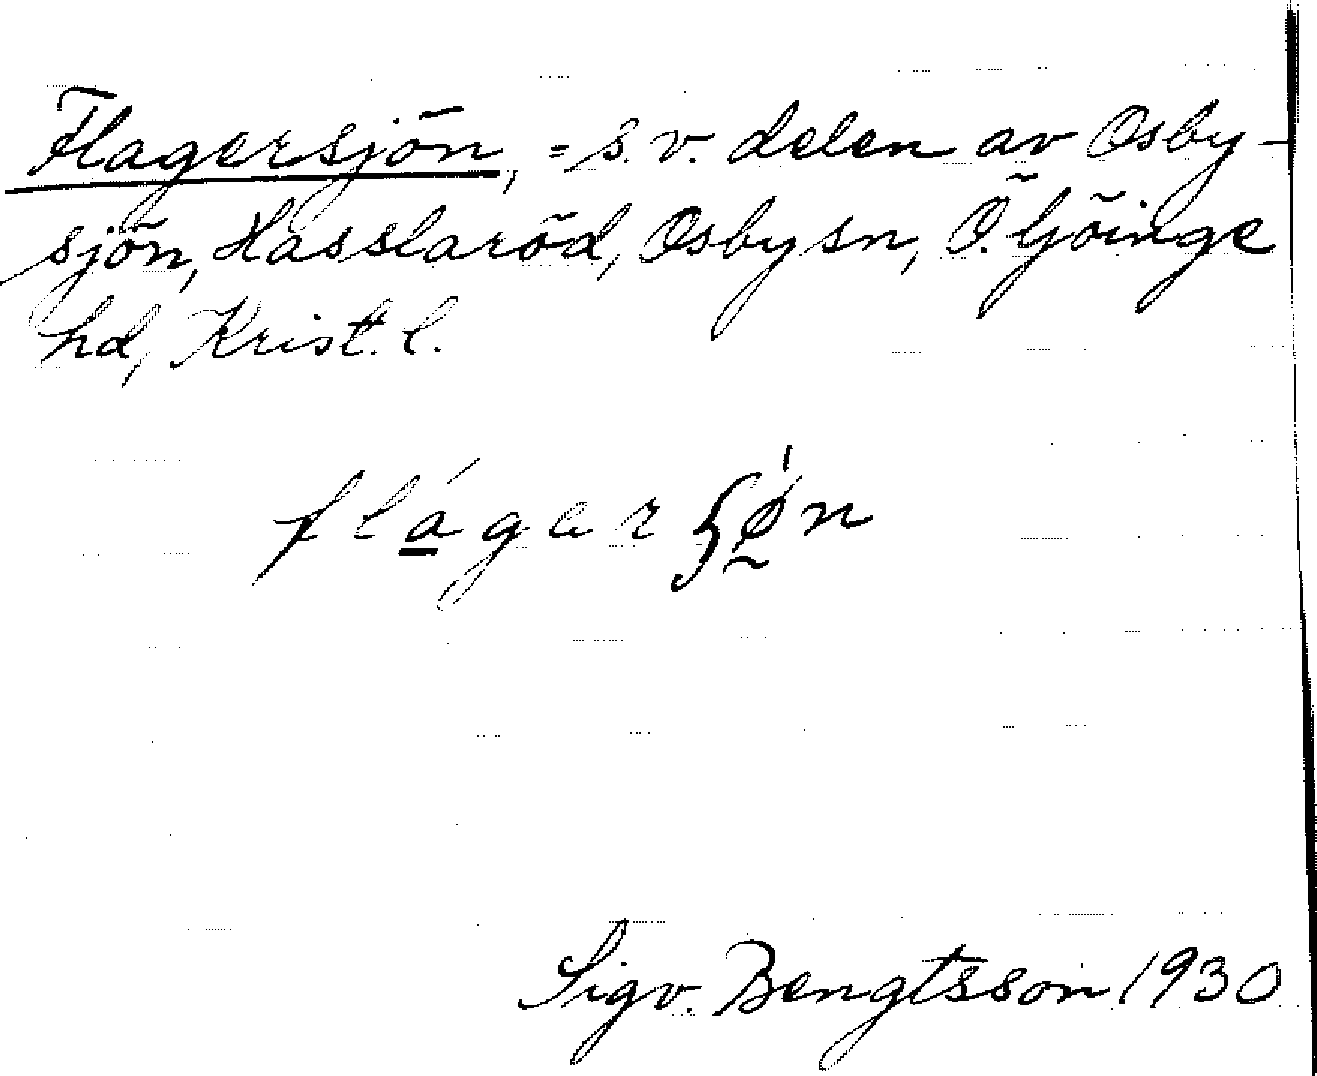 Flagersjön, = s.v. delen av Osby-
sjön, Hasslaröd, Osby sn, Ö. Göinge
hd, Krist. l.
flágerʂǿ̰n
Sigv. Bengtsson 1930